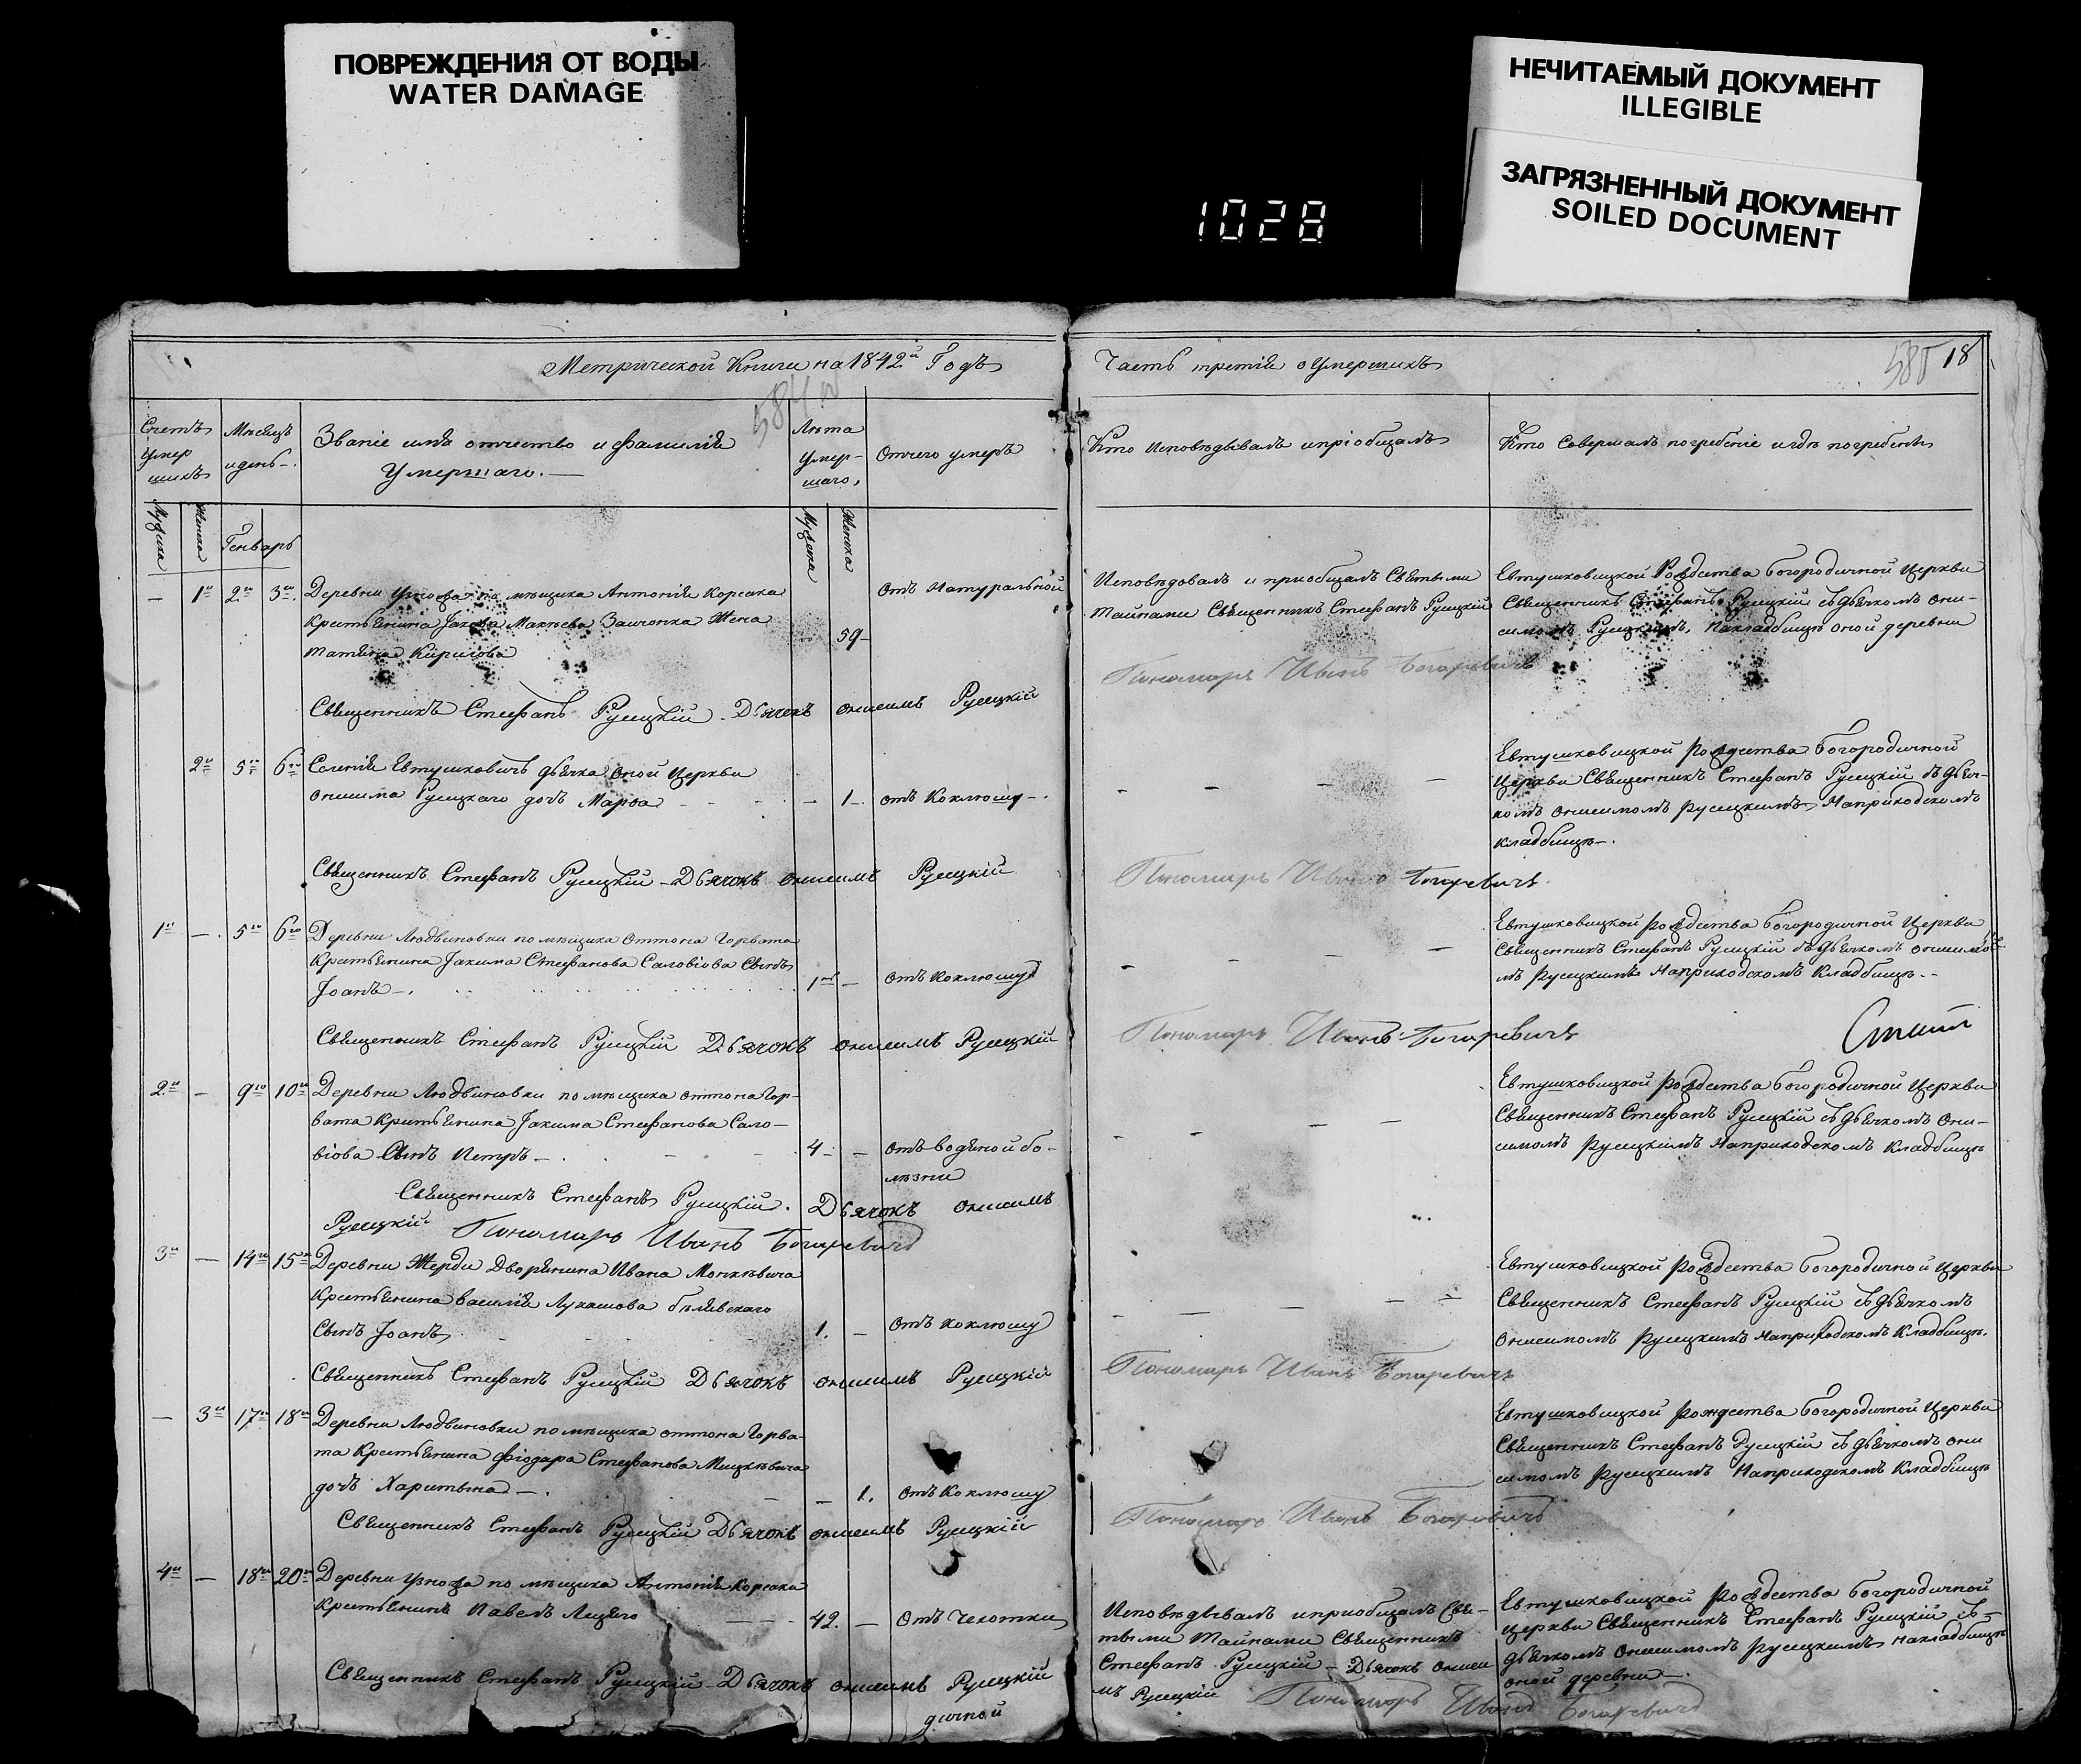 ПОВРЕЖДЕНИЯ ОТ ВОДЫ
WATER DAMAGE
НЕЧИТАЕМЫЙ ДОКУМЕНТ
ILLEGIBLE
ЗАГРЯЗНЕННЫЙ ДОКУМЕНТ
SOILED DOCUMENT
1028
Метрической Книги на 1842й Годъ
Часть третія о Умершихъ
585 18
584
Счетъ Умер шихъ
Мѣсяцъ и день
Званіе имя отчество и фамилія
Умершаго.
Лѣта Умер- шаго,
Отчего умеръ
Кто Исповѣдывалъ и пріобщалъ
Кто Совершалъ погребеніе и гдѣ погребенъ
Мужска Женска Генварь Мужска Женска
– 1я 2го 3го Деревни помѣщика Антонія Корсака
Крестьянина Якова Макѣева Жена
татіяна Кирилова
59
Отъ Натуральной
Исповѣдовалъ и пріобщалъ Святыми
тайнами Священникъ Стефанъ Русецкій
Евтушковицкой Рождества Богородичной Церкви
Священникъ Стефанъ Русецкій съ дьячкомъ Они-
симомъ Русецкимъ, на кладбищѣ оной деревни
Священникъ Стефанъ Русецкій. Дьячокъ онисимъ Русецкій
Пономарь Иванъ Богаревичъ
2я 5го 6го Селенія Евтушковичъ дьячка оной Церкви
онисима Русецкаго дочь Марѳа
– 1 отъ Коклюшу
Евтушковицкой Рождества Богородичной
Церкви Священникъ Стефанъ Русецкій съ дьяч-
комъ онисимомъ Русецкимъ На приходскомъ
кладбищѣ.
Священникъ Стефанъ Русецкій Дьячокъ онисимъ Русецкій
Пономарь Иванъ Богаревичъ
1й – 5го 6го Деревни Людвиновки помѣщика оттона Горвата
Крестьянина Якима Стефанова Саловіова Сынъ
Іоанъ
1 – отъ Коклюшу
Евтушковицкой Рождества Богородичной Церкви
Священникъ Стефанъ Русецкій съ дьячкомъ онисимо-
мъ Русецкимъ На приходскомъ Кладбищѣ
Священникъ Стефанъ Русецкій Дьячокъ онисимъ Русецкій
Пономарь Иванъ Богаревичъ
2й – 9го 10го Деревни Людвиновки помѣщика оттона Гор-
вата Крестьянина Якима Стефанова Сало-
віова Сынъ Петръ
4 – Отъ водяной бо-
лѣзни
Евтушковицкой Рождества Богородичной Церкви
Священникъ Стефанъ Русецкій съ дьячкомъ Они-
симомъ Русецкимъ На приходскомъ Кладбищѣ
Священникъ Стефанъ Русецкій. Дьячокъ онисимъ
Русецкій Пономарь Иванъ Богаревичъ
3й – 14го 15го Деревни Жерди Дворянина Ивана Монкѣвича
Крестьянина василія Лукашова бѣлявскаго
Сынъ Іоанъ
1. – Отъ Коклюшу
Евтушковицкой Рождества Богородичной Церкви
Священникъ Стефанъ Русецкій съ дьячкомъ
онисимомъ Русецкимъ На приходскомъ Кладбищѣ.
Священникъ Стефанъ Русецкій Дьячокъ онисимъ Русецкій
Пономарь Иванъ Богаревичъ
– 3я 17го 18го Деревни Людвиновки помѣщика оттона Горва-
та Крестьянина фіодара Стефанова Мицкѣвича
дочь Харитына
– 1. отъ Коклюшу
Евтушковицкой Рождества Богородичной Церкви
Священникъ Стефанъ Русецкій съ дьячкомъ они
симомъ Русецкимъ На приходскомъ Кладбищѣ
Священникъ Стефанъ Русецкій Дьячокъ онисимъ Русецкій
Пономарь Иванъ Богаревичъ
4й – 18го 20го Деревни помѣщика Антонія Корсака
Крестьянинъ Павелъ
42. – Отъ Чехотки
Исповѣдывалъ и пріобщалъ Свя-
тыми тайнами Священникъ
Стефанъ Русецкій – Дьячокъ онеси
мъ Русецкій Пономарь Иванъ Богаревичъ
Евтушковицкой Рождества Богородичной
Церкви Священникъ Стефанъ Русецкій съ
дьячкомъ Онисимомъ Русецкимъ на кладбищѣ
оной деревни.
Священникъ Стефанъ Русецкій Дьячокъ онисимъ Русецкій